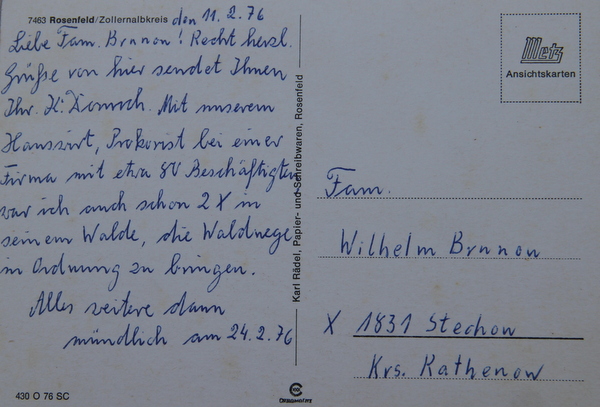 7463 Rosenfeld/Zollernalbkreis den 11.2.76
Liebe Fam. Brunow! Recht herzl.
Grüße von hier sendet Ihnen
Ihr. K. Mit unserem
Hauswirt, Prokurist bei einer
Firma mit etwa 80 Beschäftigten
war ich auch schon 2 X in
seinem Walde, die Waldwege
in Ordnung zu bringen.
Alles weitere dann
mündlich am 24.2.76
430 O 76 SC
Karl Rädel, Papier- und Schreibwaren, Rosenfeld
Metz
Ansichtskarten
Fam.
Wilhelm Brunow
X 1831 Stechow
Krs. Rathenow